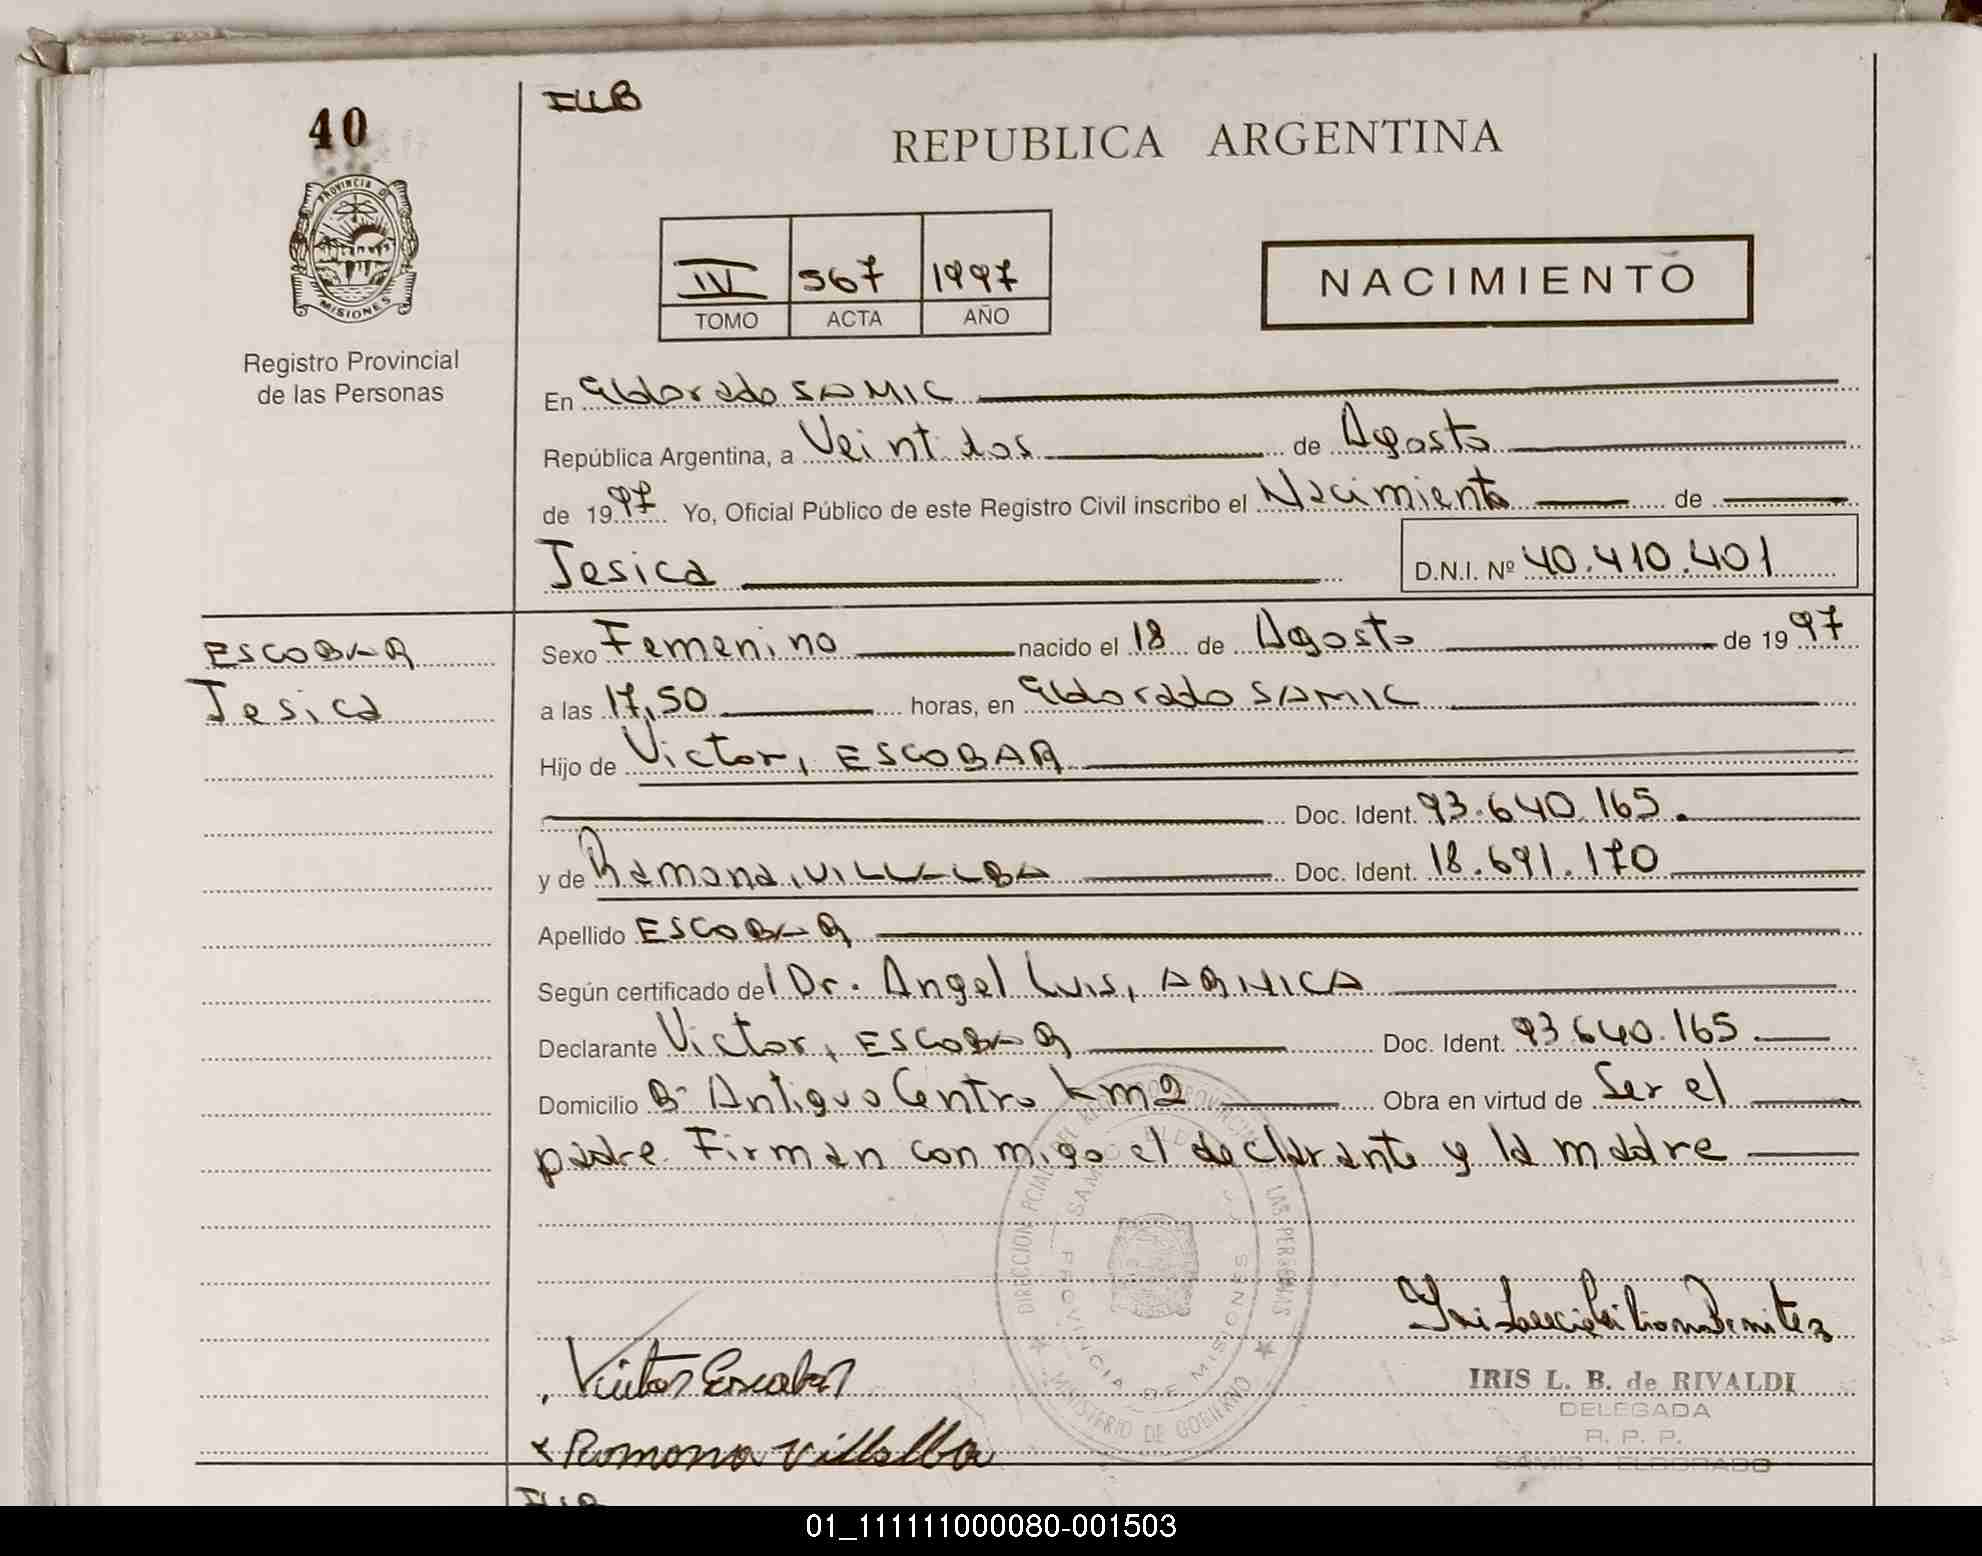 40
ILLB
REPUBLICA ARGENTINA
PROVINCIA DE
MISIONES
Registro Provincial
de las Personas
IV 567 1997
TOMO ACTA AÑO
NACIMIENTO
En Eldorado SAMIC
República Argentina, a Veintidos de Agosto
de 1997 Yo, Oficial Público de este Registro Civil inscribo el Nacimiento de
Jesica D.N.I. Nº 40.410.401
ESCOBAR
Jesica
Sexo Femenino nacido el 18 de Agosto de 1997
a las 17,50 horas, en Eldorado SAMIC
Hijo de Victor, ESCOBAR
Doc. Ident. 93.640.165.
y de Ramona, VILLALBA Doc. Ident. 18.691.170
Apellido ESCOBAR
Según certificado del Dr. Angel Luis, ARNICA
Declarante Victor, ESCOBAR Doc. Ident. 93.640.165
Domicilio Bº Antiguo Centro Km 2 Obra en virtud de Ser el
padre. Firman con migo el declarante y la madre
DIRECCION PCIAL DEL REGISTRO PROVINCIAL DE LAS PERSONAS
MINISTERIO DE GOBIERNO
PROVINCIA DE MISIONES
Victor Escobar
x Ramona Villalba
IRIS L. B. de RIVALDI
DELEGADA
R. P. P.
SAMIC - ELDORADO
ILLB
01_111111000080-001503